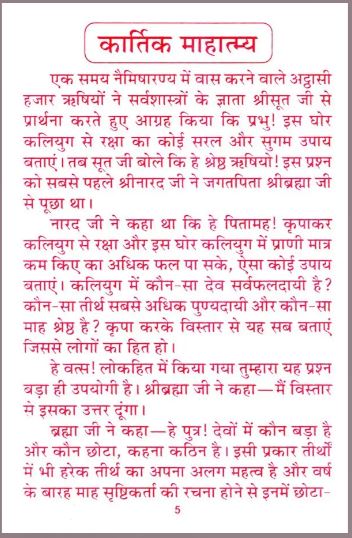 कार्तिक माहात्म्य
एक समय नैमिषारण्य में वास करने वाले अट्ठासी
हजार ऋषियों ने सर्वशास्त्रों के ज्ञाता श्रीसूत जी से
प्रार्थना करते हुए आग्रह किया कि प्रभु! इस घोर
कलियुग से रक्षा का कोई सरल और सुगम उपाय
बताएं। तब सूत जी बोले कि हे श्रेष्ठ ऋषियो! इस प्रश्न
को सबसे पहले श्रीनारद जी ने जगतपिता श्रीब्रह्मा जी
से पूछा था।
नारद जी ने कहा था कि हे पितामह! कृपाकर
कलियुग से रक्षा और इस घोर कलियुग में प्राणी मात्र
कम किए का अधिक फल पा सके, ऐसा कोई उपाय
बताएं। कलियुग में कौन-सा देव सर्वफलदायी है?
कौन-सा तीर्थ सबसे अधिक पुण्यदायी और कौन-सा
माह श्रेष्ठ है? कृपा करके विस्तार से यह सब बताएं
जिससे लोगों का हित हो।
हे वत्स! लोकहित में किया गया तुम्हारा यह प्रश्न
बड़ा ही उपयोगी है। श्रीब्रह्मा जी ने कहा—मैं विस्तार
से इसका उत्तर दूंगा।
ब्रह्मा जी ने कहा—हे पुत्र! देवों में कौन बड़ा है
और कौन छोटा, कहना कठिन है। इसी प्रकार तीर्थों
में भी हरेक तीर्थ का अपना अलग महत्व है और वर्ष
के बारह माह सृष्टिकर्ता की रचना होने से इनमें छोटा-
5